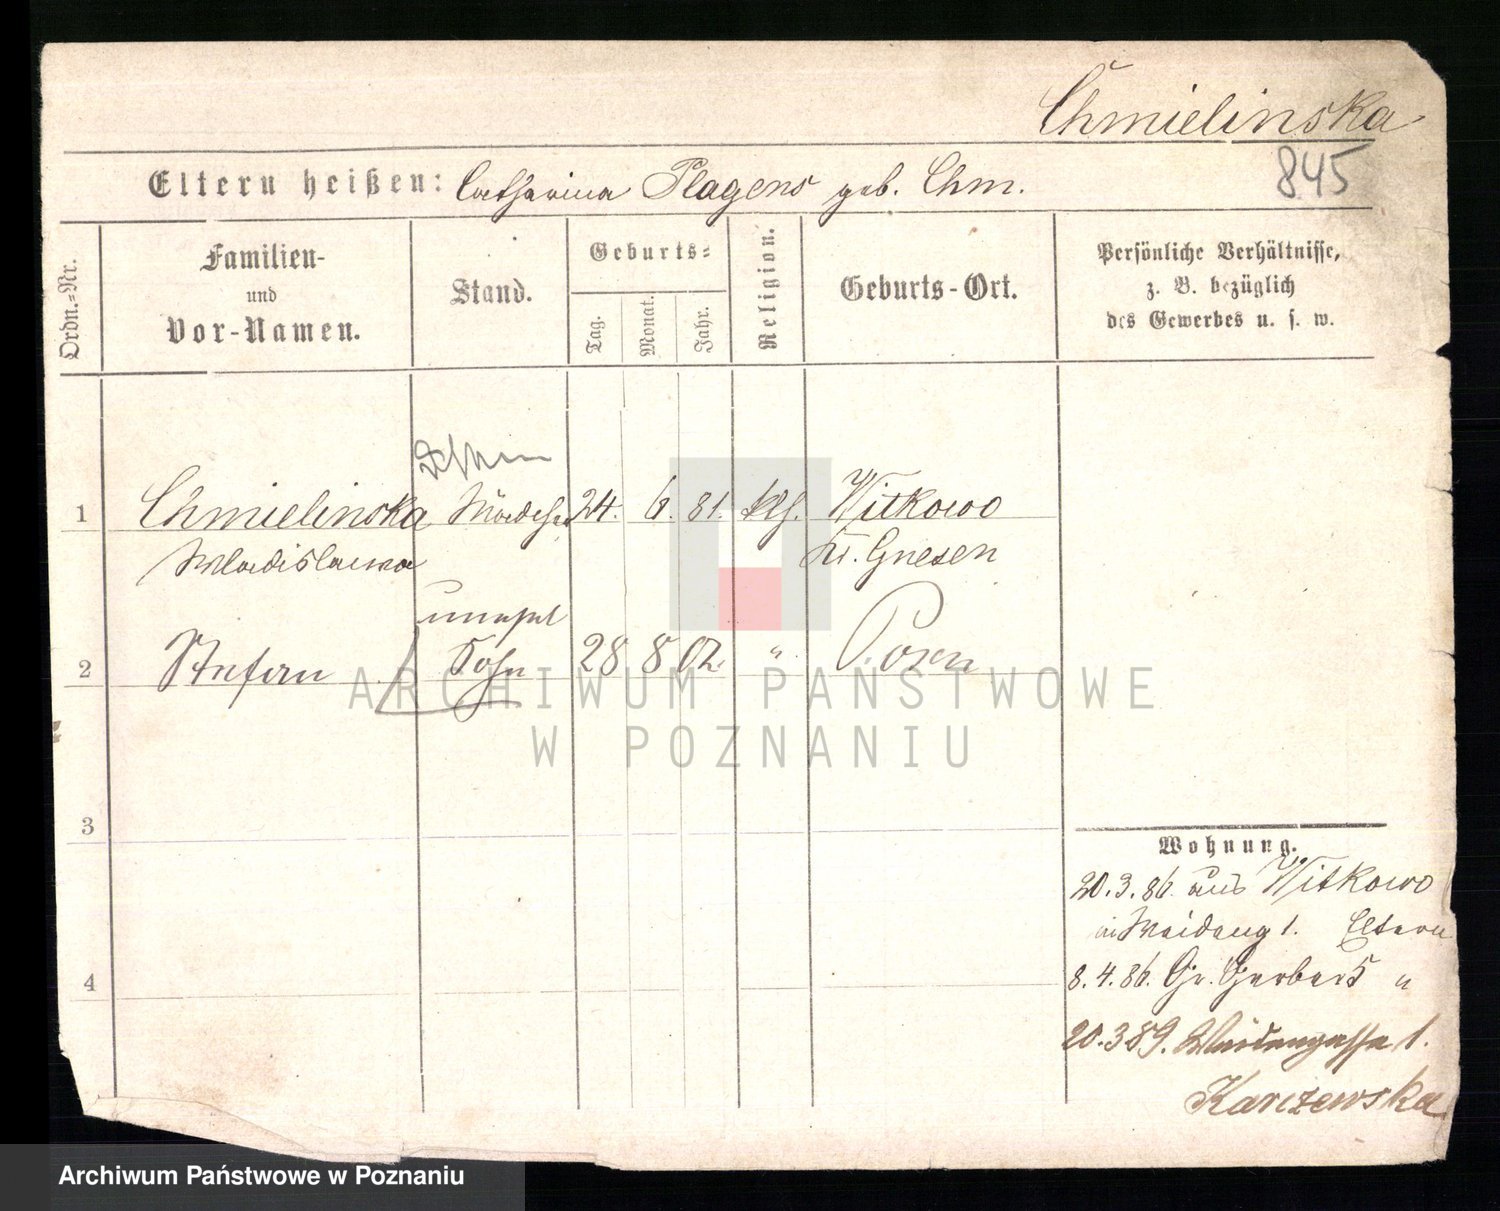 Chmielinska
845
Eltern heißen: Catharina Plagens geb. Chm.
Ordn.-Nr.
Familien-
und
Vor-Namen.
Stand.
Geburts-
Tag.
Monat.
Jahr.
Religion.
Geburts-Ort.
Persönliche Verhältnisse,
z. B. bezüglich
des Gewerbes u. s. w.
1 Chmielinska Mädchen 24. 6. 81. kth. Witkowo
Wladislawa Kr. Gnesen
unehel
2 Stefan Sohn 28 8 02. " Posen
3
4
Wohnung.
20.3.86. aus Witkowo
in Waideng 1. Eltern
8.4.86. Gr. Gerber 5 "
20.3 89. Waidengasse 1.
Karczewska
ARCHIWUM PAŃSTWOWE
W POZNANIU
Archiwum Państwowe w Poznaniu